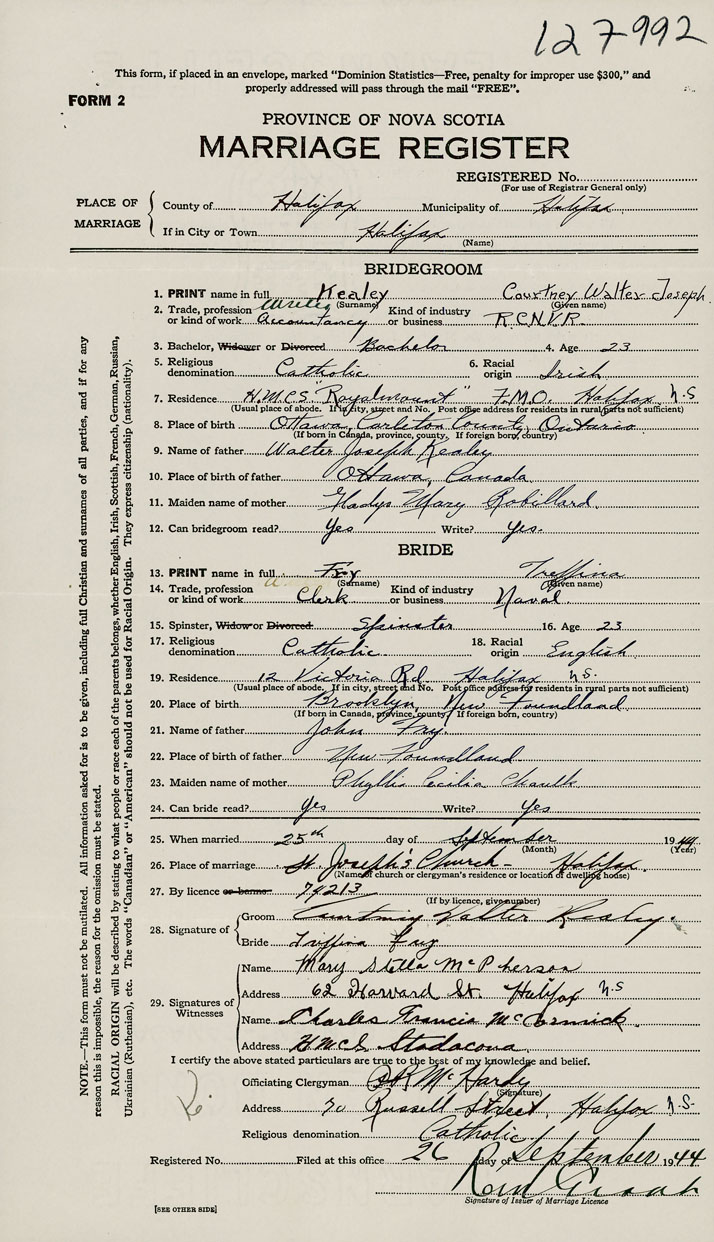 127992
This form, if placed in an envelope, marked "Dominion Statistics—Free, penalty for improper use $300," and
properly addressed will pass through the mail "FREE".
FORM 2
PROVINCE OF NOVA SCOTIA
MARRIAGE REGISTER
REGISTERED No.
(For use of Registrar General only)
PLACE OF MARRIAGE
County of Halifax Municipality of Halifax
If in City or Town Halifax
(Name)
BRIDEGROOM
1. PRINT name in full Kealey Courtney Walter Joseph
(Surname) (Given name)
2. Trade, profession or kind of work Accountancy Kind of industry or business R.C.N.V.R.
3. Bachelor, Widower or Divorced Bachelor 4. Age 23
5. Religious denomination Catholic 6. Racial origin Irish
7. Residence H.M.C.S. "Royalmount" F.M.O. Halifax N.S
(Usual place of abode. If in city, street and No. Post office address for residents in rural parts not sufficient)
8. Place of birth Ottawa, Carleton County, Ontario
(If born in Canada, province, county. If foreign born, country)
9. Name of father Walter Joseph Kealey
10. Place of birth of father Ottawa, Canada
11. Maiden name of mother Gladys Mary Robillard
12. Can bridegroom read? Yes Write? Yes.
BRIDE
13. PRINT name in full Fry Treffina
(Surname) (Given name)
14. Trade, profession or kind of work Clerk Kind of industry or business Naval
15. Spinster, Widow or Divorced Spinster 16. Age 23
17. Religious denomination Catholic 18. Racial origin English
19. Residence 12 Victoria Rd Halifax N.S.
(Usual place of abode. If in city, street and No. Post office address for residents in rural parts not sufficient)
20. Place of birth Brooklyn, New Foundland
(If born in Canada, province, county If foreign born, country)
21. Name of father John Fry.
22. Place of birth of father New Foundland
23. Maiden name of mother Phyllis Cecilia Chaulk
24. Can bride read? Yes Write? Yes
25. When married 25th day of September 1944
(Month) (Year)
26. Place of marriage St. Joseph's Church - Halifax
(Name of church or clergyman's residence or location of dwelling house)
27. By licence or banns 74213
(If by licence, give number)
28. Signature of
Groom Courtney Walter Kealey.
Bride Treffina Fry
29. Signatures of Witnesses
Name Mary Stella McPherson
Address 62 Harvard St. Halifax N.S
Name Charles Francis McCormick
Address HMCS Stadacona
I certify the above stated particulars are true to the best of my knowledge and belief.
Officiating Clergyman McHardy
(Signature)
Address Russell Street, Halifax N.S.
Religious denomination Catholic
Registered No. Filed at this office 26 day of September 1944
Signature of Issuer of Marriage Licence
[SEE OTHER SIDE]
NOTE.—This form must not be mutilated. All information asked for is to be given, including full Christian and surnames of all parties, and if for any
reason this is impossible, the reason for the omission must be stated.
RACIAL ORIGIN will be described by stating to what people or race each of the parents belongs, whether English, Irish, Scottish, French, German, Russian,
Ukrainian (Ruthenian), etc. The words "Canadian" or "American" should not be used for Racial Origin. They express citizenship (nationality).